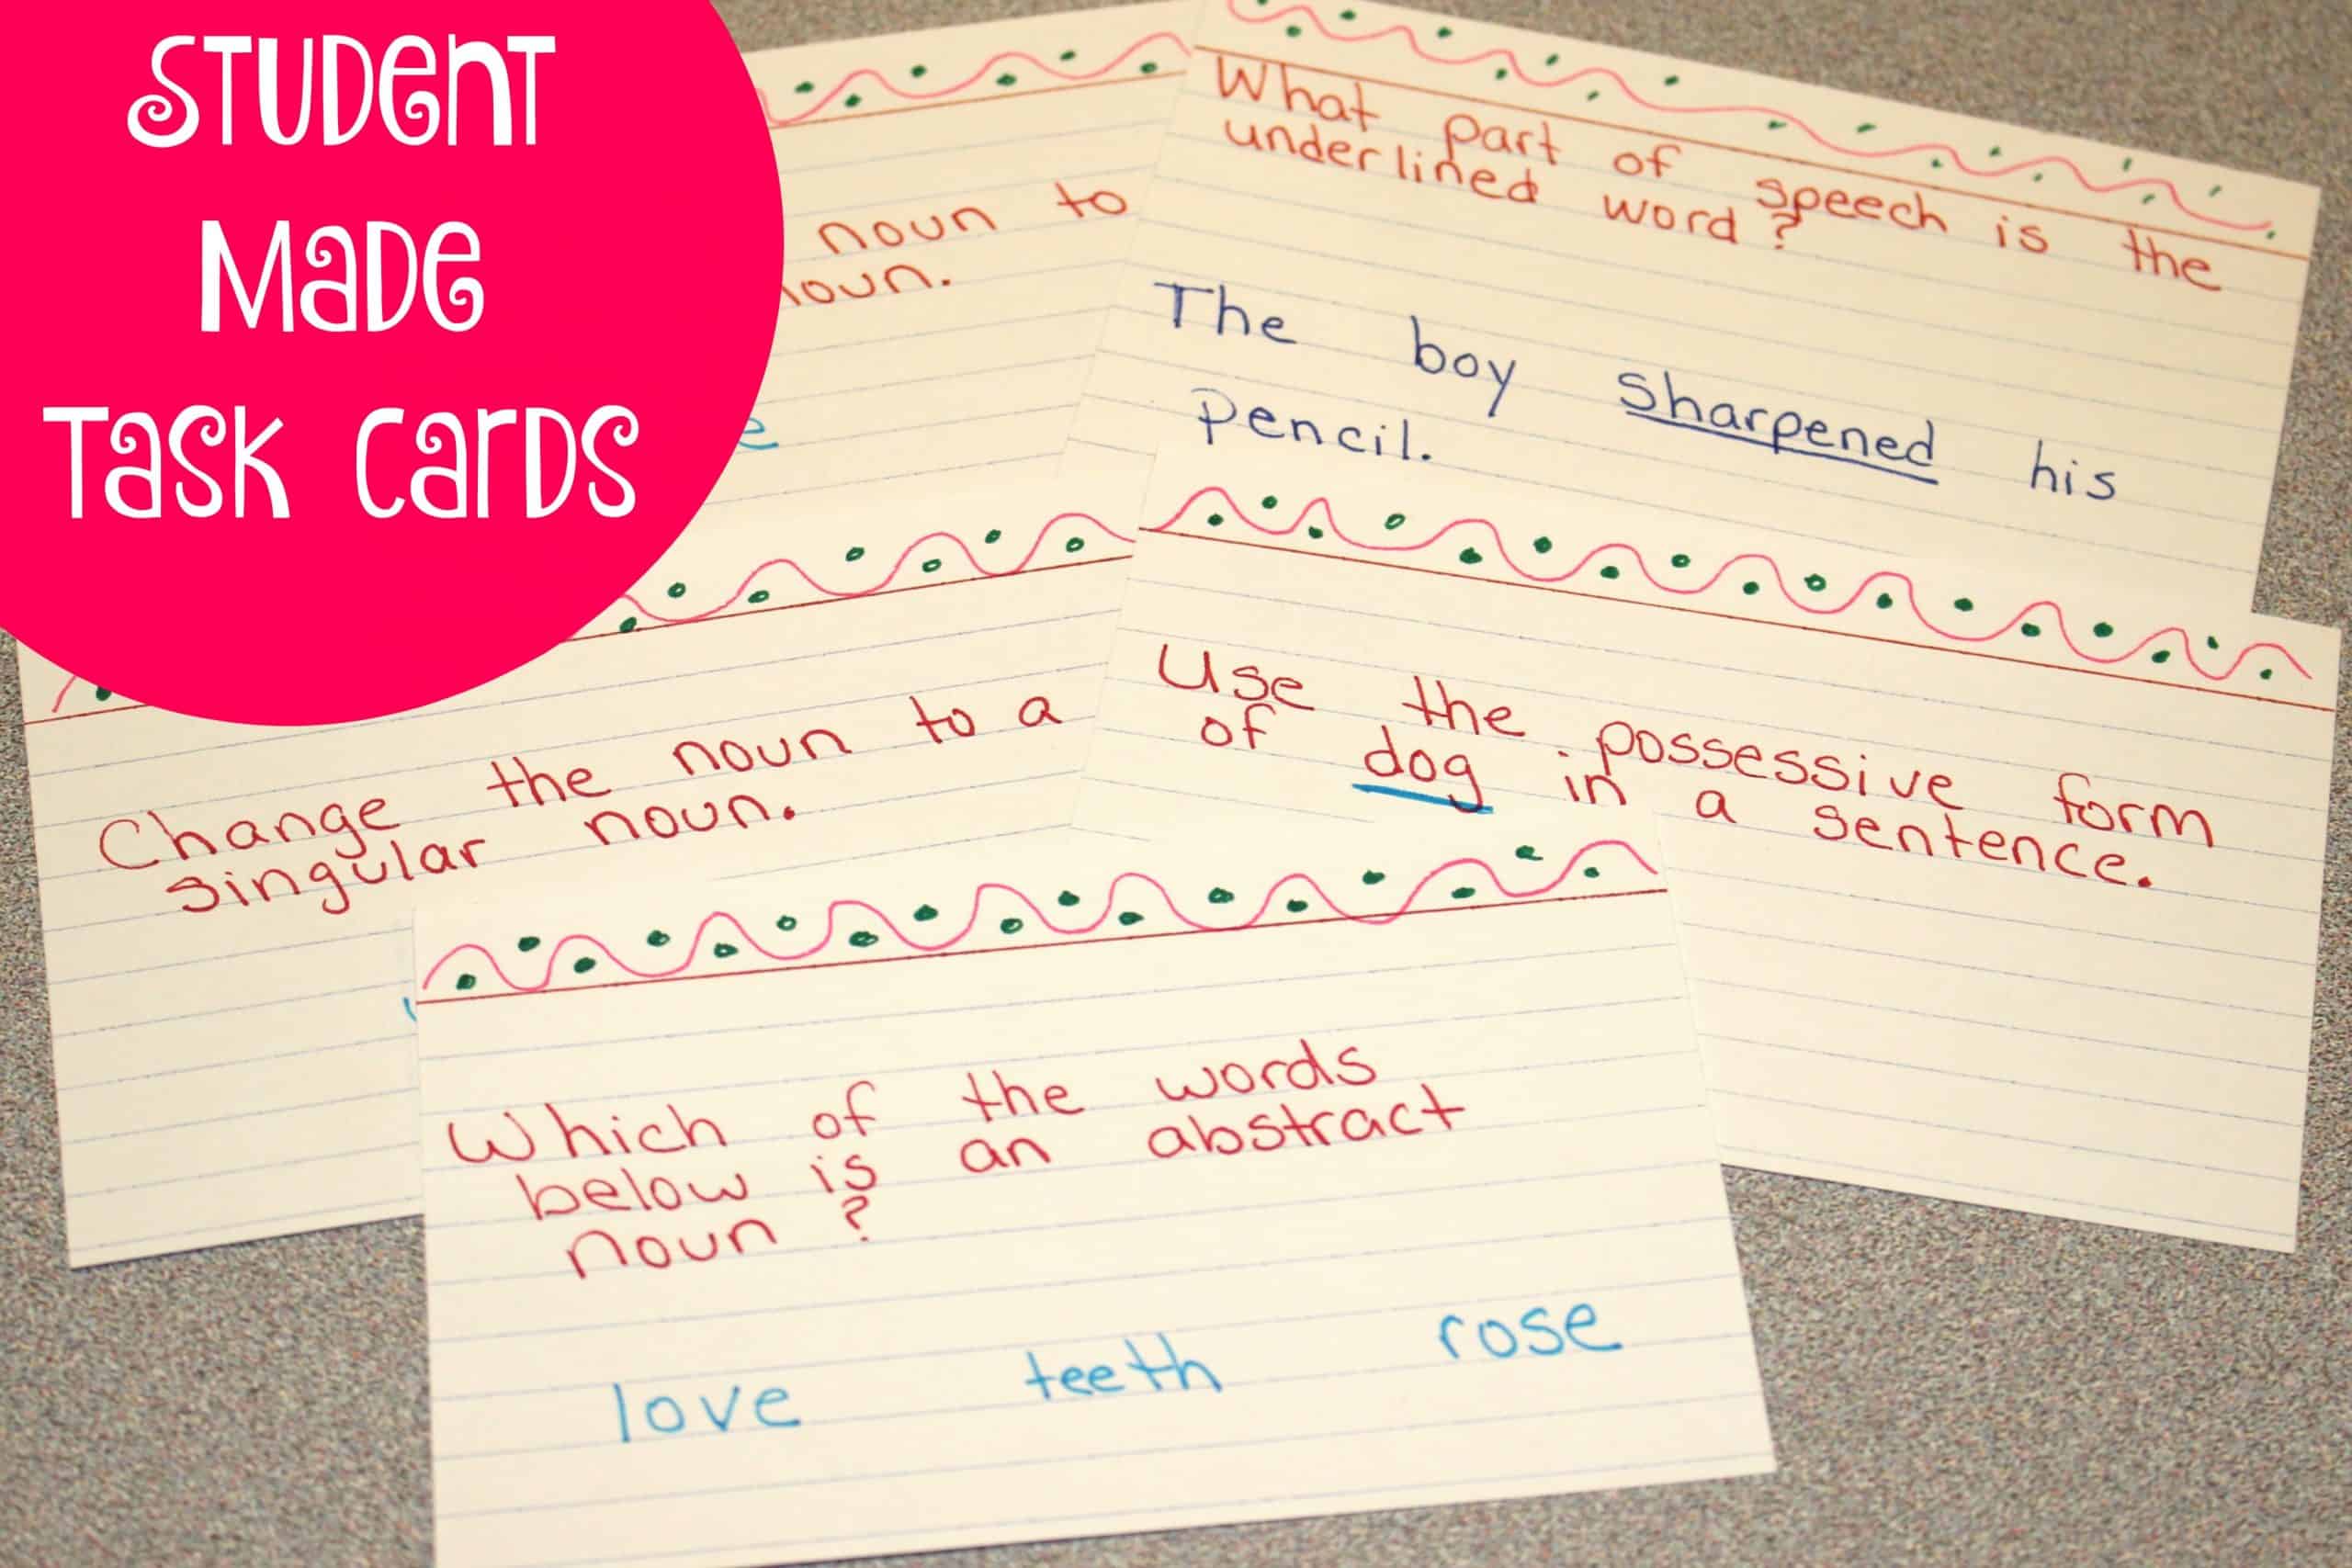 Student
Made
Task Cards
noun to
noun.
What part of speech is the
underlined word?
The boy sharpened his
pencil.
Change the noun to a
singular noun.
Use the possessive form
of dog in a sentence.
Which of the words
below is an abstract
noun?
love teeth rose